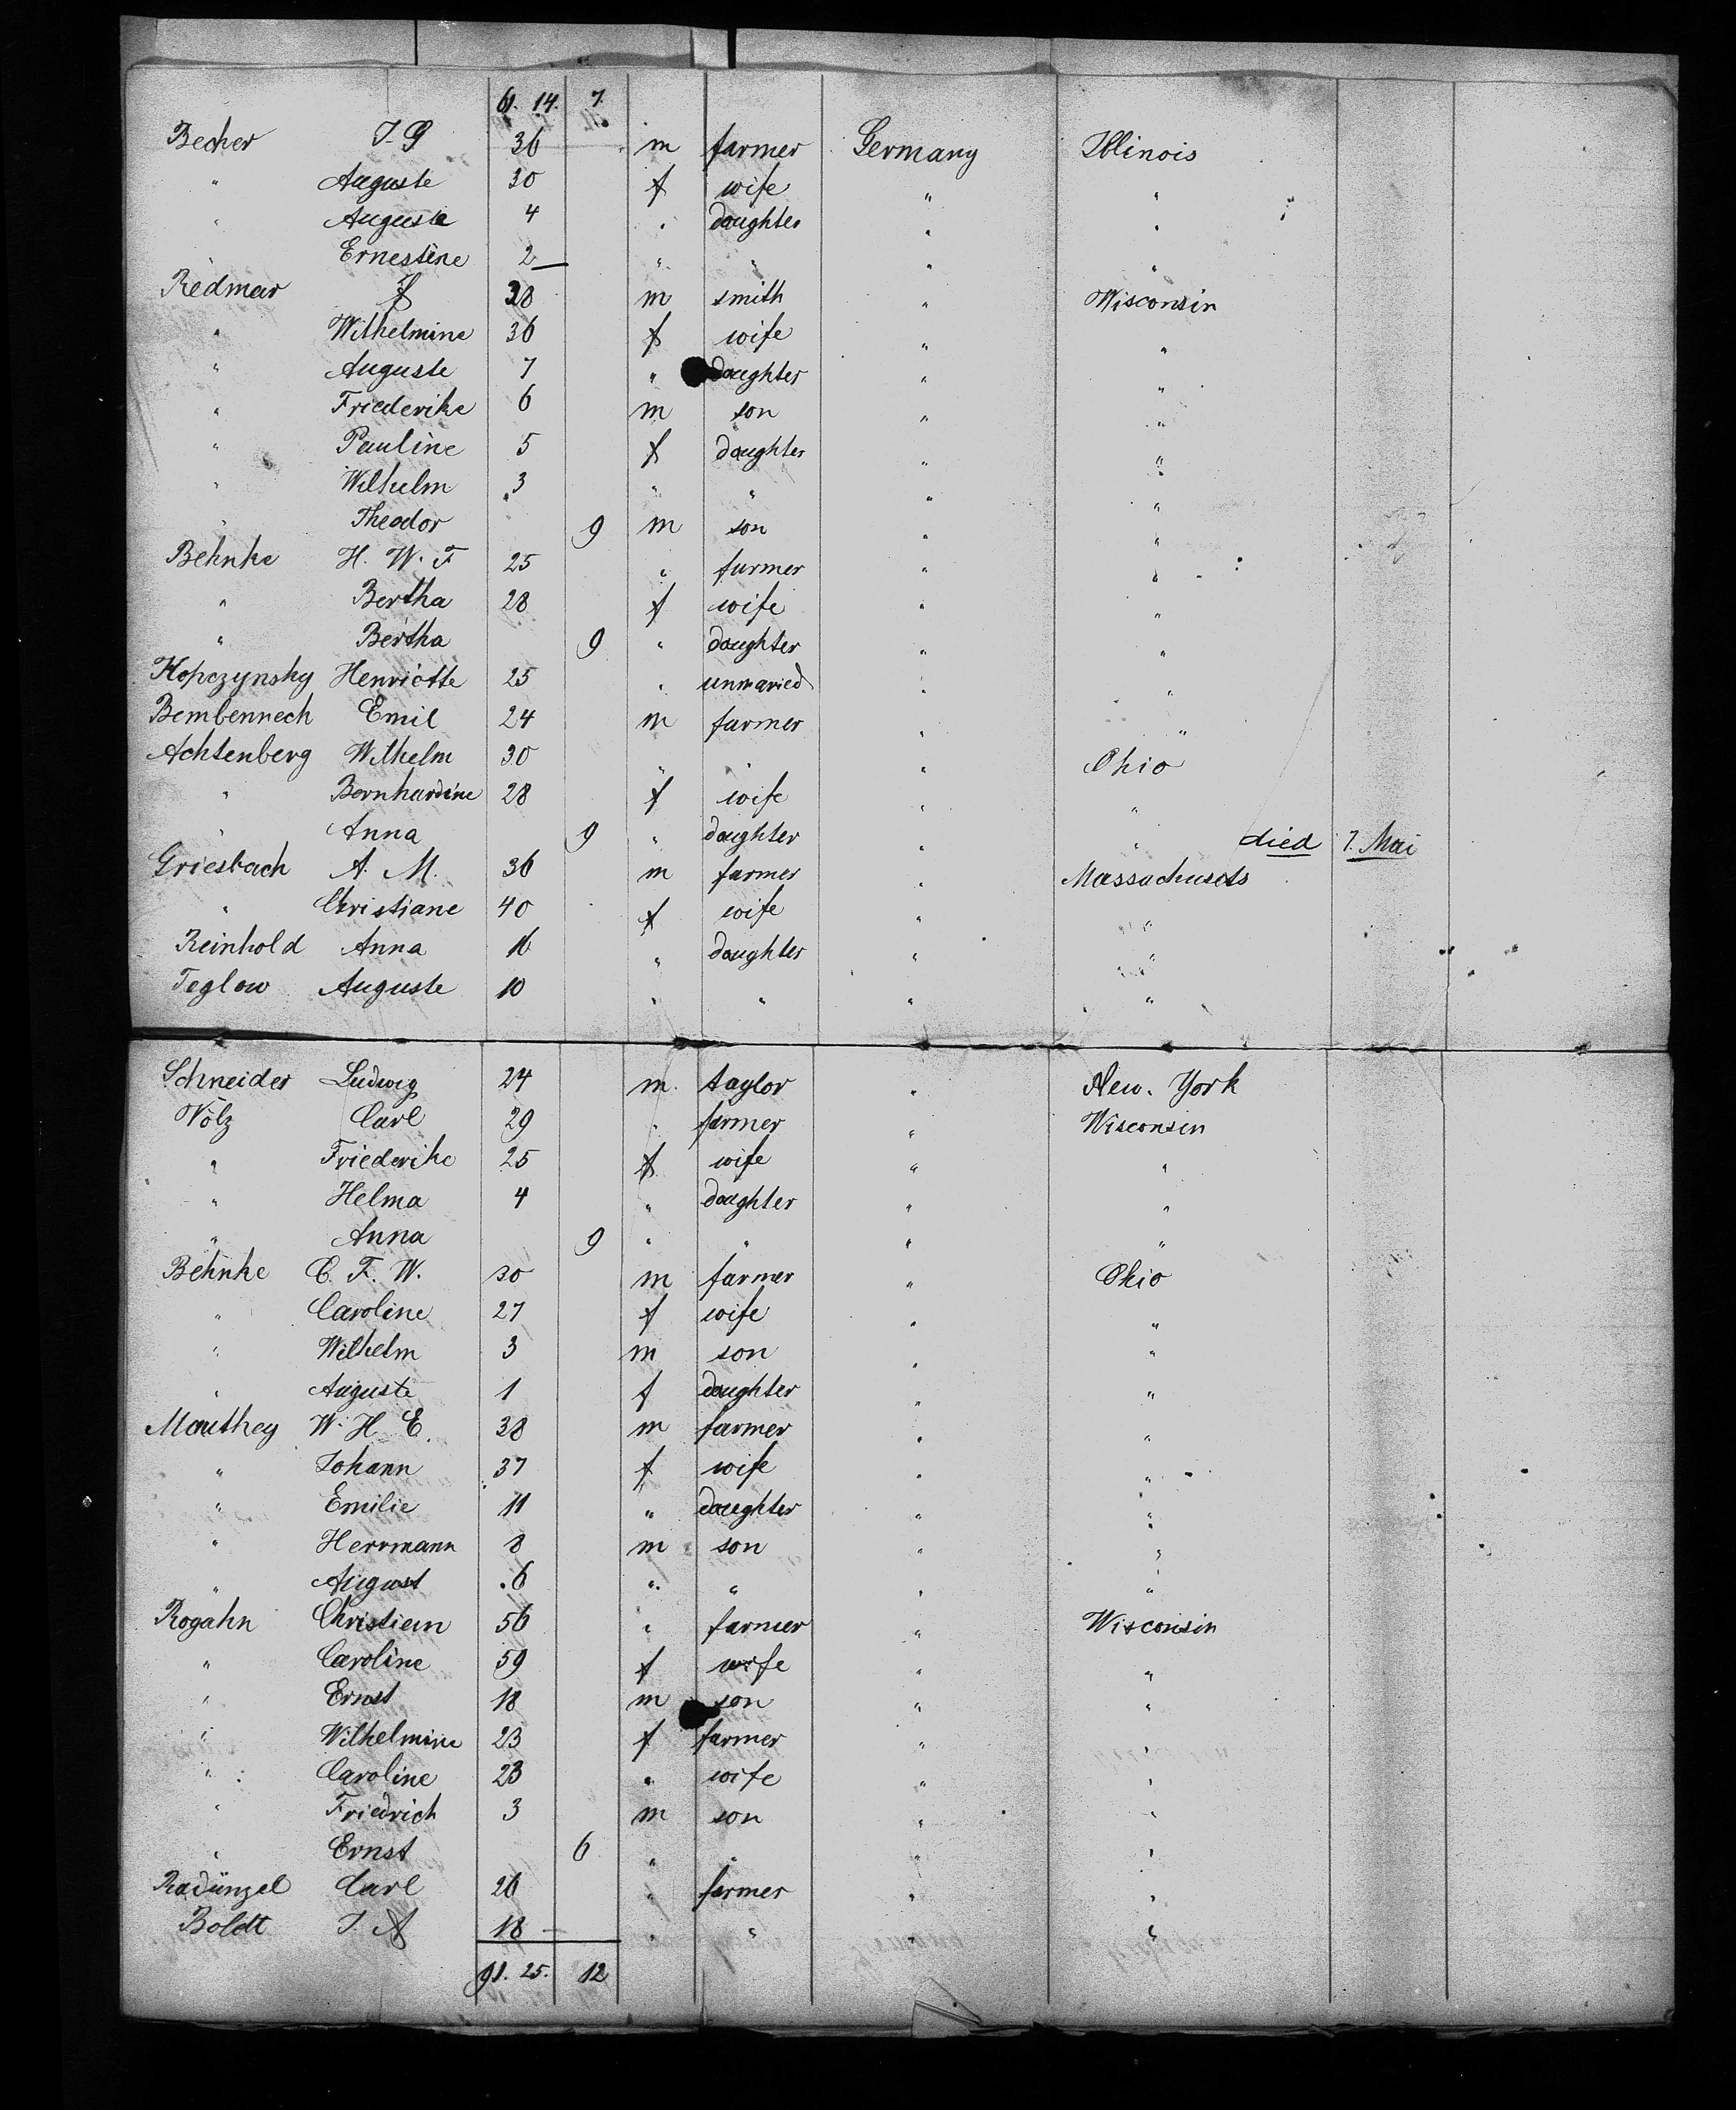 61. 14. 7.
Becher J. G 36 m farmer Germany Illinois
" Auguste 30 f wife " "
" Auguste 4 " daughter " "
Ernestine 2 " " " "
Redmer F 38 m smith " Wisconsin
" Wilhelmine 36 f wife " "
" Auguste 7 " daughter " "
" Friederike 6 m son " "
" Pauline 5 f daughter " "
" Wilhelm 3 " " " "
" Theodor 9 m son " "
Behnke H. W. F 25 " farmer " "
" Bertha 28 f wife " "
" Bertha 9 " daughter " "
Kopczynsky Henriette 25 " unmaried " "
Bembenneck Emil 24 m farmer " "
Achtenberg Wilhelm 30 " " " Ohio
" Bernhardine 28 f wife " "
" Anna 9 " daughter " " died 7. Mai
Griesbach A. M. 36 m farmer " Massachusets
" Christiane 40 f wife " "
Reinhold Anna 16 " daughter " "
Teglow Auguste 10 " " " "
Schneider Ludwig 24 m. taylor " New. York
Völz Carl 29 " farmer " Wisconsin
" Friederike 25 f wife " "
" Helma 4 " daughter " "
" Anna 9 " " " "
Behnke C. F. W. 30 m farmer " Ohio
" Caroline 27 f wife " "
" Wilhelm 3 m son " "
" Auguste 1 f daughter " "
Manthey W. H. E. 38 m farmer " "
" Johann 37 f wife " "
" Emilie 11 " daughter " "
" Herrmann 8 m son " "
" August 6 " " " "
Rogahn Christian 56 " farmer " Wisconsin
" Caroline 59 f wife " "
" Ernst 18 m son " "
" Wilhelmine 23 f farmer " "
" Caroline 23 " wife " "
" Friedrich 3 m son " "
" Ernst 6 " " " "
Radünzel Carl 26 " farmer " "
Boldt J. A 18 " " " "
91. 25. 12